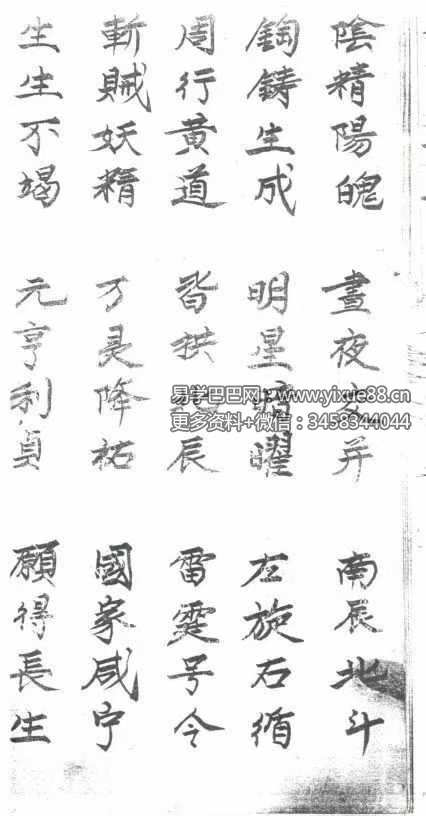 陰精陽魄 晝夜交并 南辰北斗
鋾鋳生成 明星晴曜 左旋右循
周行黄道 皆拱辰 雷霆号令
斬賊妖精 万灵降祐 國家咸宁
生生不竭 元亨利貞 願得長生
易学巴巴网：www.yixue88.cn
更多资料+微信：3458344044